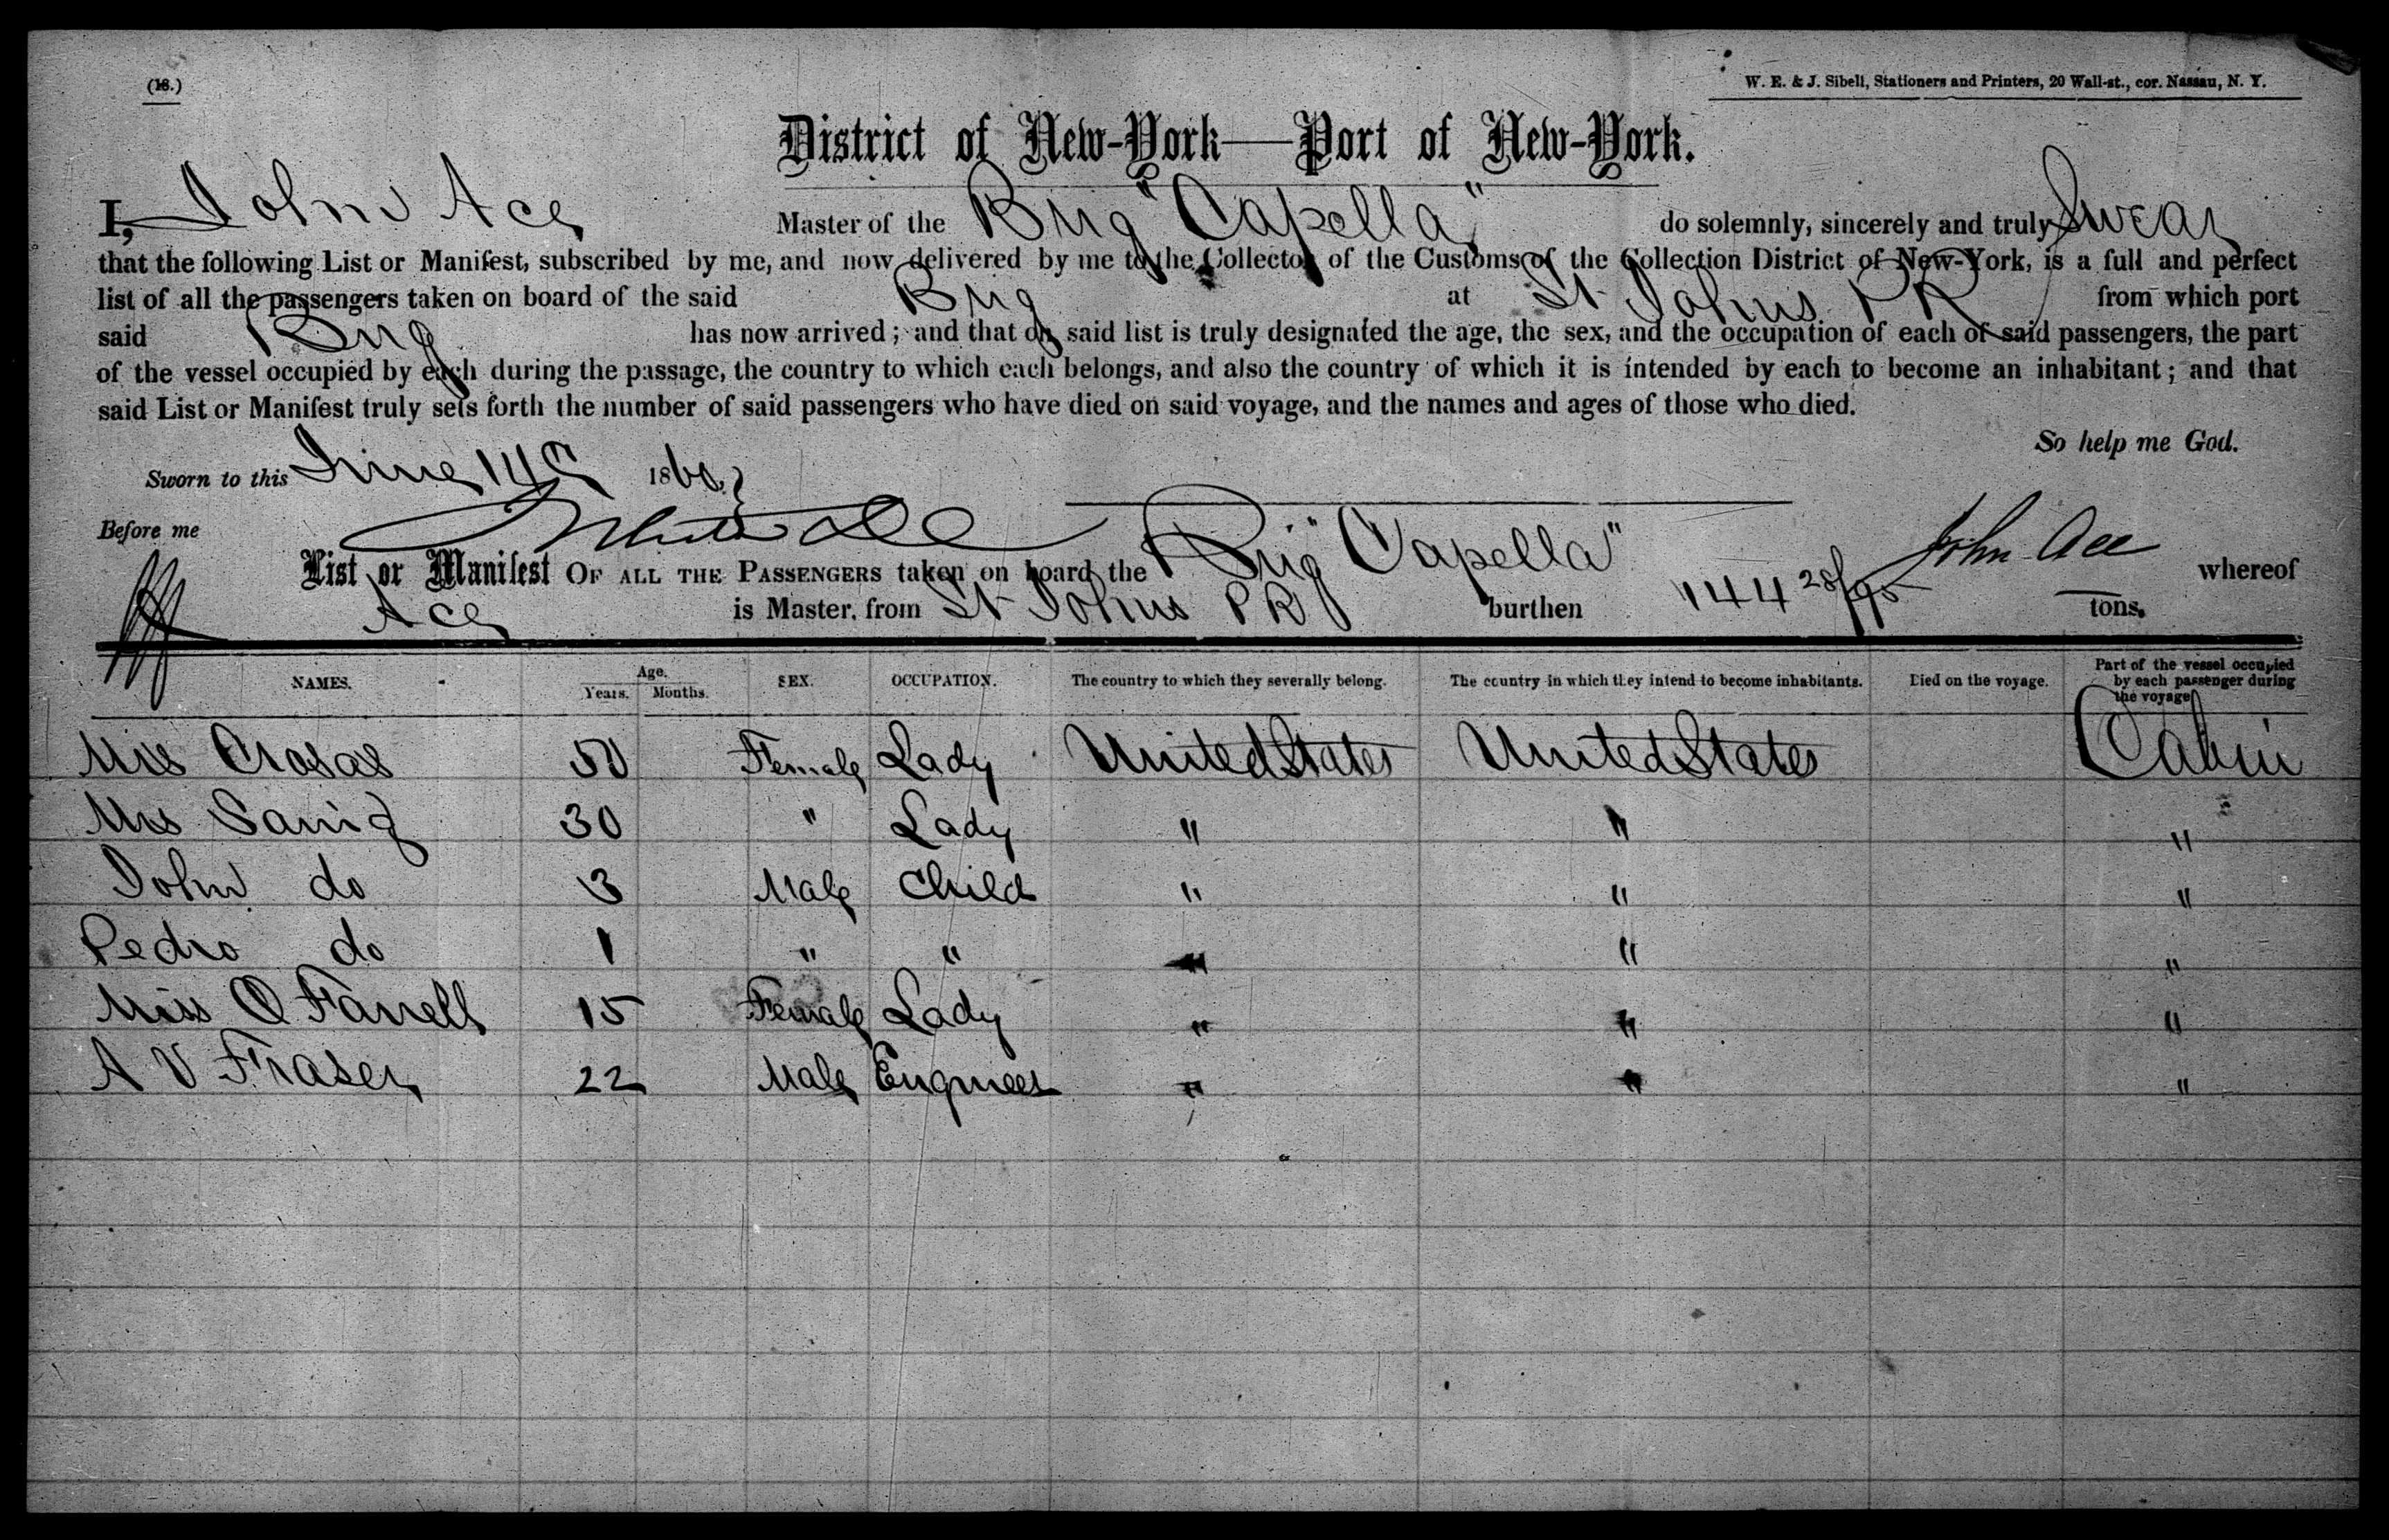 (18.)
W. E. & J. Sibell, Stationers and Printers, 20 Wall-st., cor. Nassau, N. Y.
District of New-York—Port of New-York.
I, John Ace Master of the Brig "Capella" do solemnly, sincerely and truly Swear
that the following List or Manifest, subscribed by me, and now delivered by me to the Collector of the Customs of the Collection District of New-York, is a full and perfect
list of all the passengers taken on board of the said Brig at St Johns PR from which port
said Brig has now arrived; and that on said list is truly designated the age, the sex, and the occupation of each of said passengers, the part
of the vessel occupied by each during the passage, the country to which each belongs, and also the country of which it is intended by each to become an inhabitant; and that
said List or Manifest truly sets forth the number of said passengers who have died on said voyage, and the names and ages of those who died.
So help me God.
Sworn to this June 14 1860
Before me
John Ace
List or Manifest OF ALL THE PASSENGERS taken on board the Brig "Capella" whereof
Ace is Master, from St Johns PR burthen 144 28/95 tons.
NAMES. Age. Years. Months. SEX. OCCUPATION. The country to which they severally belong. The country in which they intend to become inhabitants. Died on the voyage. Part of the vessel occupied by each passenger during the voyage
Mrs Crosas 50 Female Lady United States United States Cabin
Mrs 30 " Lady " " "
John do 3 Male Child " " "
Pedro do 1 " " " " "
Miss O Farrell 15 Female Lady " " "
A V Fraser 22 Male Engineer " " "